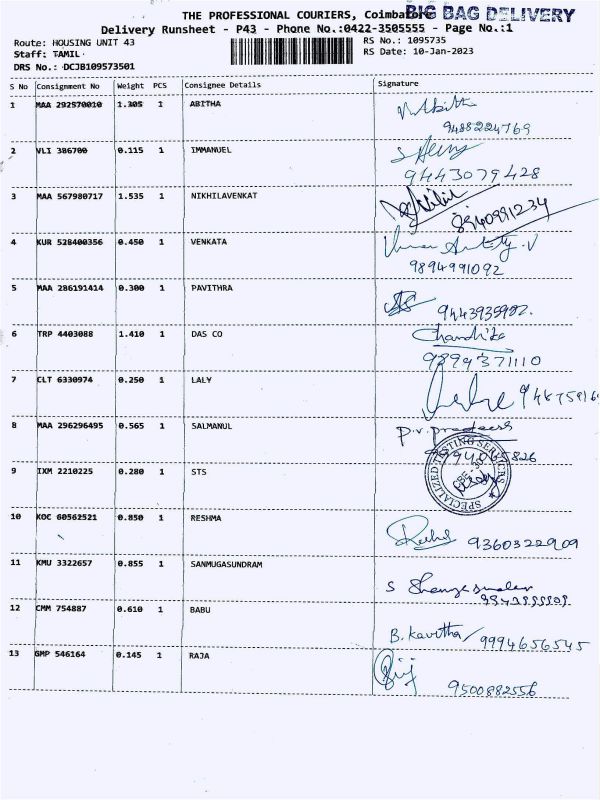 THE PROFESSIONAL COURIERS, Coimbatore
BIG BAG DELIVERY
Delivery Runsheet - P43 - Phone No.:0422-3505555 - Page No.:1
Route: HOUSING UNIT 43 RS No.: 1095735
Staff: TAMIL RS Date: 10-Jan-2023
DRS No.: DCJB109573501
S No Consignment No Weight PCS Consignee Details Signature
1 MAA 292570010 1.305 1 ABITHA
9488224769
2 VLI 386700 0.115 1 IMMANUEL
9443079428
3 MAA 567980717 1.535 1 NIKHILAVENKAT
8940991234
4 KUR 528400356 0.450 1 VENKATA
9894991092
5 MAA 286191414 0.300 1 PAVITHRA
6 TRP 4403088 1.410 1 DAS CO
9899371110
7 CLT 6330974 0.250 1 LALY
8 MAA 296296495 0.565 1 SALMANUL
P.V. Pradeesh
9 IXM 2210225 0.280 1 STS
SPECIALIZED TESTING SERVICES
10 KOC 60562521 0.850 1 RESHMA
9360322909
11 KMU 3322657 0.855 1 SANMUGASUNDRAM
12 CMM 754887 0.610 1 BABU
B. Kavitha/9994656545
13 GMP 546164 0.145 1 RAJA
9500882556